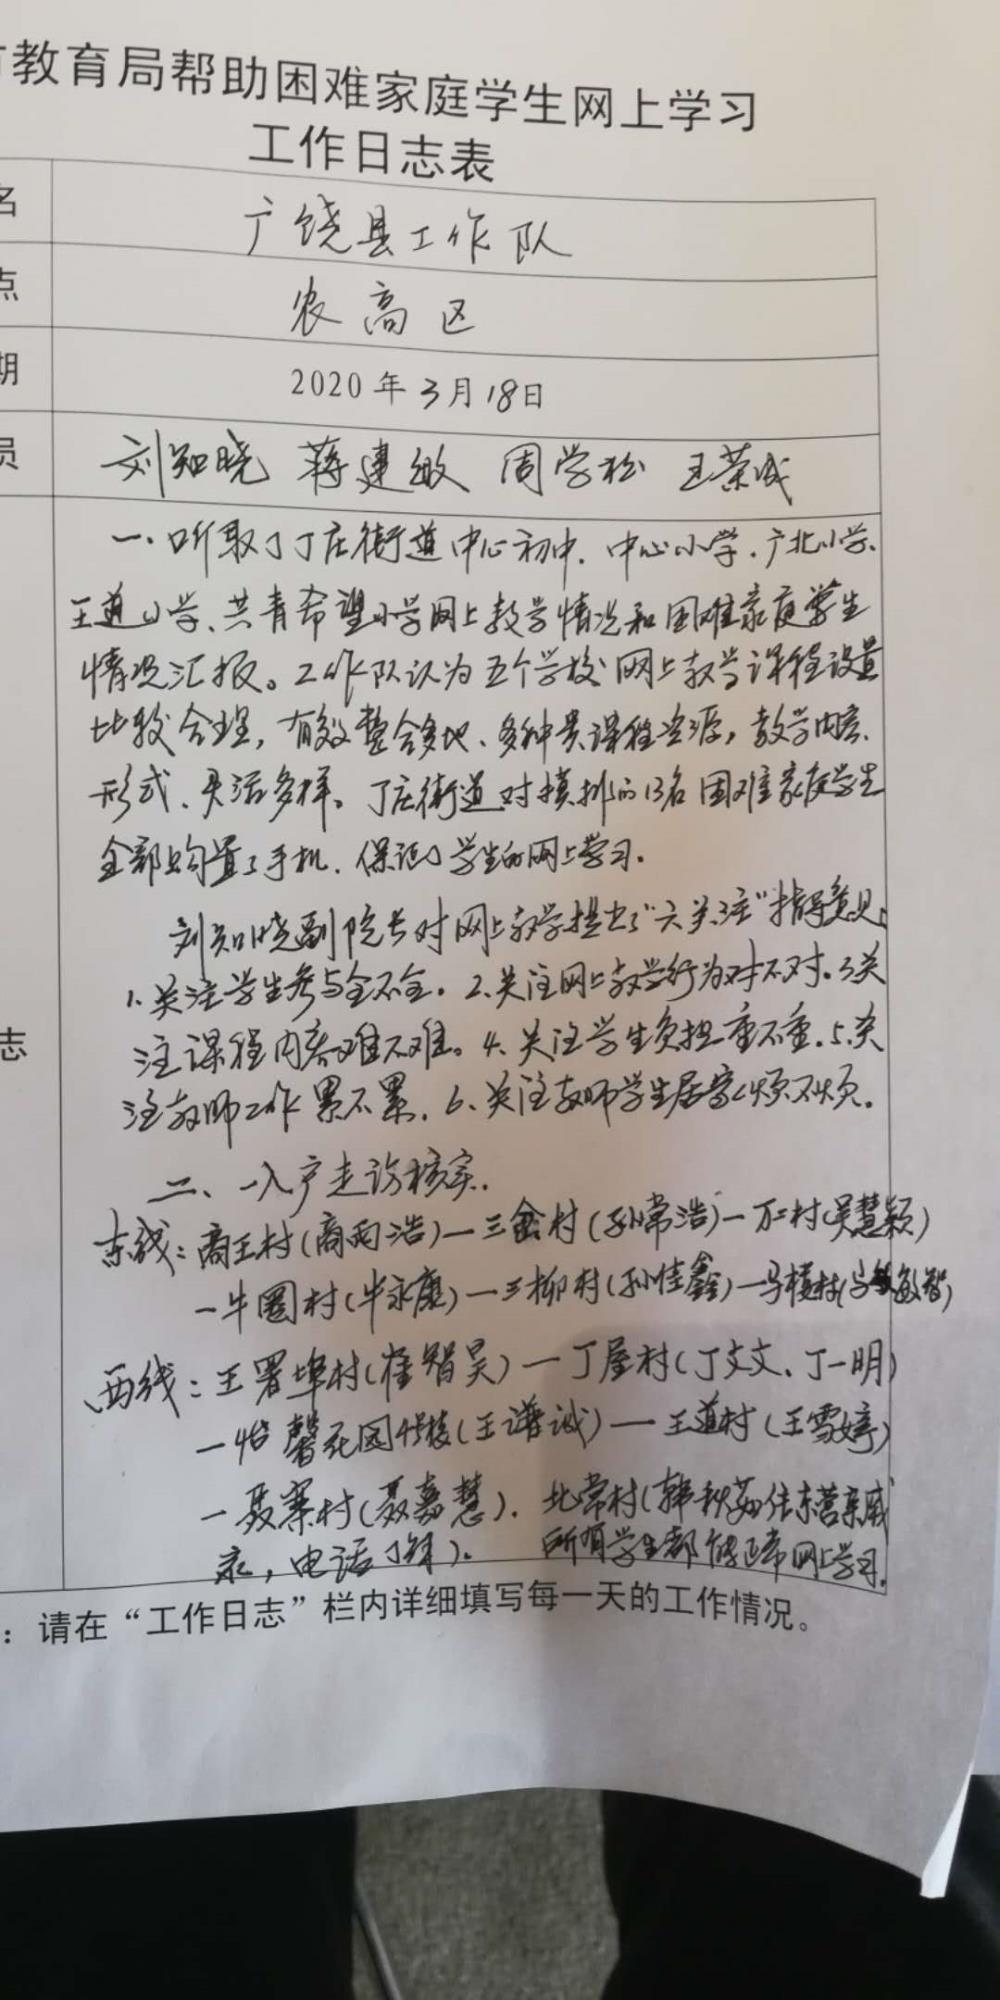 市教育局帮助困难家庭学生网上学习
工作日志表
名 广饶县工作队
点 农高区
期 2020年3月18日
员 刘知晓 蒋建敏 周学松 王荣成
一、听取了丁庄街道中心初中、中心小学、广北小学、
王道小学、共青希望小学网上教学情况和困难家庭学生
情况汇报。工作队认为五个学校网上教学课程设置
比较合理，有效整合多地、多种类课程资源，教学内容、
形式、灵活多样。丁庄街道对摸排的13名困难家庭学生
全部购置了手机，保证了学生的网上学习。
刘知晓副院长对网上教学提出了“六关注”指导意见：
1、关注学生参与全不全。2、关注网上教学行为对不对。3、关
注课程内容难不难。4、关注学生负担重不重。5、关
志
注教师工作累不累。6、关注教师学生居家烦不烦。
二、入户走访核实。
东线：商王村（商雨浩）—三盒村（孙常浩）—万二村（吴慧颖）
—牛圈村（牛永康）—三柳村（孙佳鑫）—马楼村（敏智）
西线：王署埠村（崔智昊）—丁屋村（丁文文、丁一明）
—怡馨花园4号楼（王谦诚）—王道村（王雪婷）
—聂寨村（聂嘉慧）. 北常村（韩秋茹住东营亲戚
家，电话了解）。 所有学生都能正常网上学习。
：请在“工作日志”栏内详细填写每一天的工作情况。